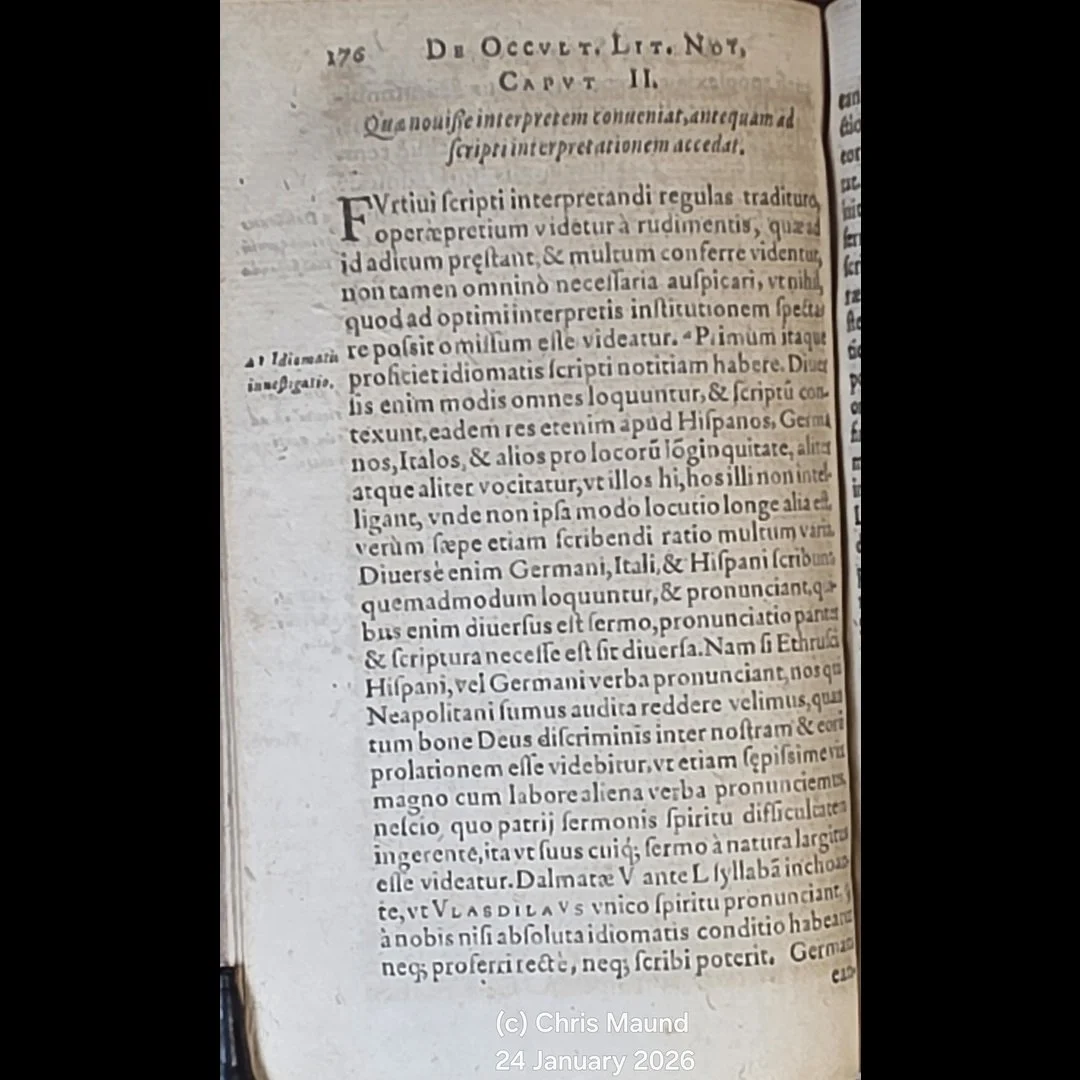 176 DE OCCVLT. LIT. NOT,
CAPVT II.
Quæ nouiſſe interpretem conueniat, antequam ad
ſcripti interpretationem accedat.
FVrtiui ſcripti interpretandi regulas tradituro,
operæpretium videtur à rudimentis, quæ ad
id aditum pręſtant, & multum conferre videntur,
non tamen omninò neceſſaria auſpicari, vt nihil,
quod ad optimi interpretis inſtitutionem ſpecta
re poſsit omiſſum eſſe videatur. ᵃ Primum itaque
a 1 Idiomatis
inueſtigatio.
proficiet idiomatis ſcripti notitiam habere. Diuer
ſis enim modis omnes loquuntur, & ſcriptũ con-
texunt, eadem res etenim apud Hiſpanos, Germa
nos, Italos, & alios pro locorũ lõginquitate, aliter
atque aliter vocitatur, vt illos hi, hos illi non intel-
ligant, vnde non ipſa modo locutio longe alia eſt,
verùm ſæpe etiam ſcribendi ratio multum varia.
Diuersè enim Germani, Itali, & Hiſpani ſcribunt
quemadmodum loquuntur, & pronunciant, qui-
bus enim diuerſus eſt ſermo, pronunciatio
& ſcriptura neceſſe eſt ſit diuerſa. Nam ſi Ethruſci
Hiſpani, vel Germani verba pronunciant, nos qui
Neapolitani ſumus audita reddere velimus, quan
tum bone Deus diſcriminis inter noſtram & eorũ
prolationem eſſe videbitur, vt etiam ſępiſsime
magno cum labore aliena verba pronunciemus,
neſcio, quo patrij ſermonis ſpiritu difficultatem
ingerente, ita vt ſuus cuiq; ſermo à natura largitus
eſſe videatur. Dalmatæ V ante L ſyllabã inchoan
te, vt VLASDILAVS vnico ſpiritu pronunciant,
à nobis niſi abſoluta idiomatis conditio habeatur
neq; proferri rectè, neq; ſcribi poterit. German
ean-
(c) Chris Maund
24 January 2026